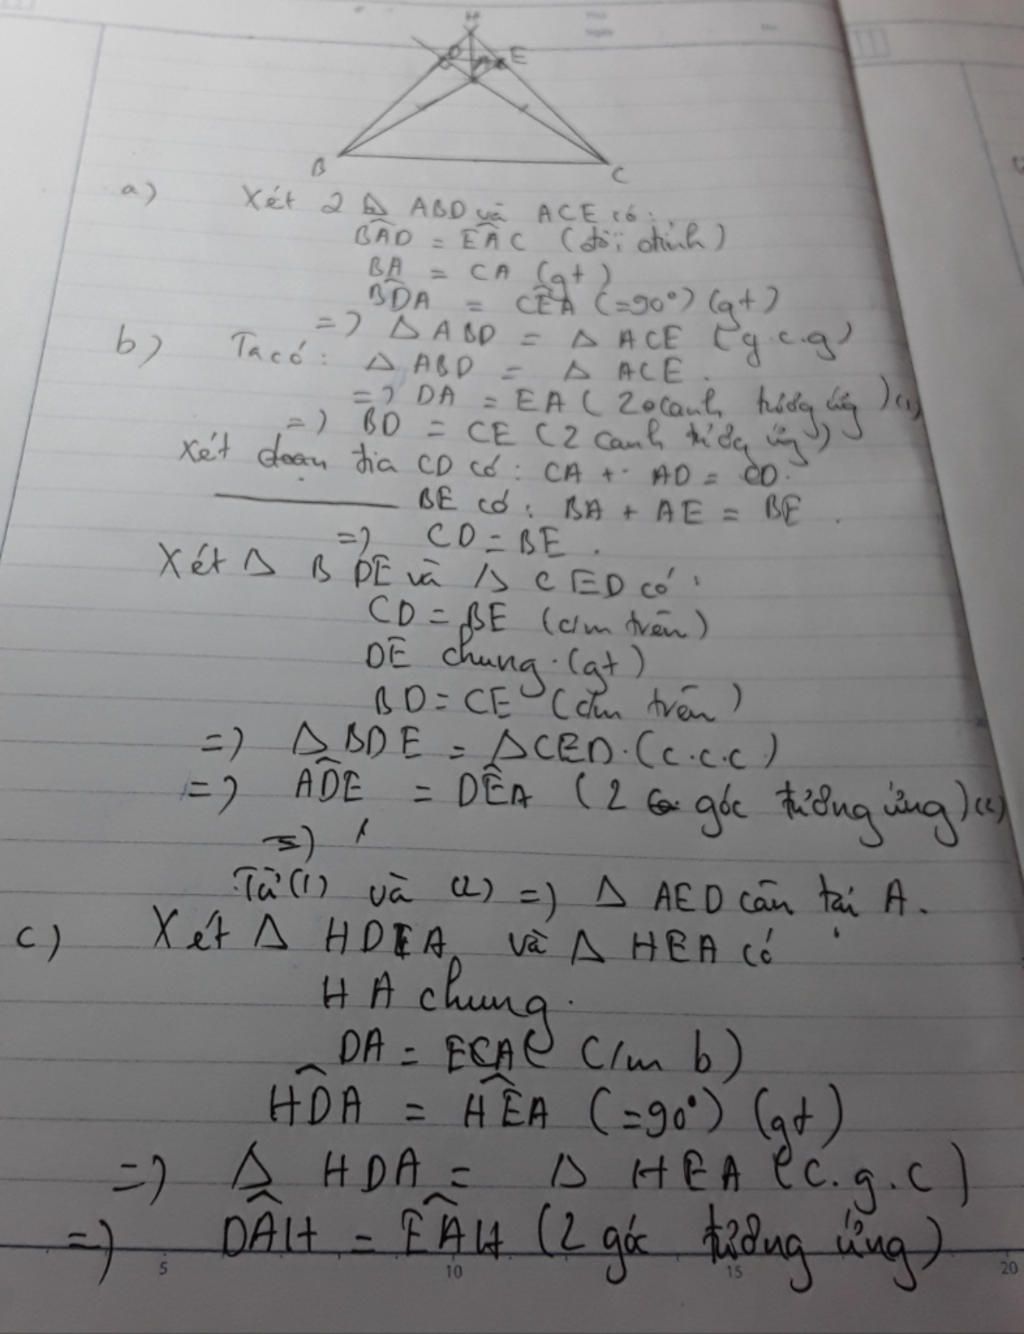 H
D E
B C
a) Xét 2 Δ ABD và ACE có:
BÂD = EÂC (đối đỉnh)
BA = CA (gt)
BD̂A = CÊA (=90°) (gt)
=> Δ ABD = Δ ACE (g.c.g)
b) Ta có: Δ ABD = Δ ACE.
=> DA = EA (2 cạnh tương ứng) (1)
=> BD = CE (2 cạnh tương ứng)
Xét đoạn tia CD có: CA + AD = CD.
BE có: BA + AE = BE.
=> CD = BE.
Xét Δ BDE và Δ CED có:
CD = BE (c/m trên)
DE chung. (gt)
BD = CE (c/m trên)
=> Δ BDE = Δ CED. (c.c.c)
=> AD̂E = DÊA (2 góc tương ứng) (2)
=>
Từ (1) và (2) => Δ AED cân tại A.
c) Xét Δ HDA và Δ HEA có
HA chung.
DA = EA (c/m b)
HD̂A = HÊA (=90°) (gt)
=> Δ HDA = Δ HEA (c.g.c)
=> DÂH = EÂH (2 góc tương ứng)
5 10 15 20